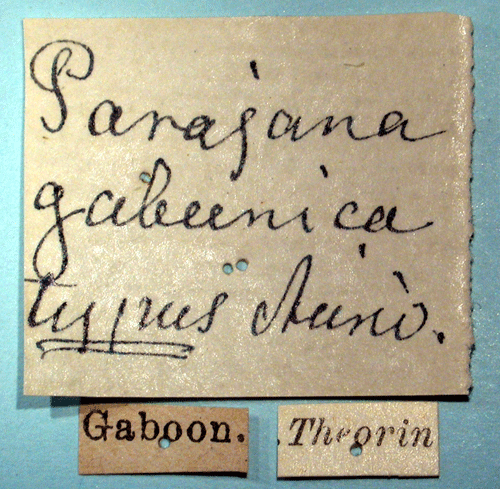 Parajana
gabunica
typus Auriv.
Gaboon.
Theorin